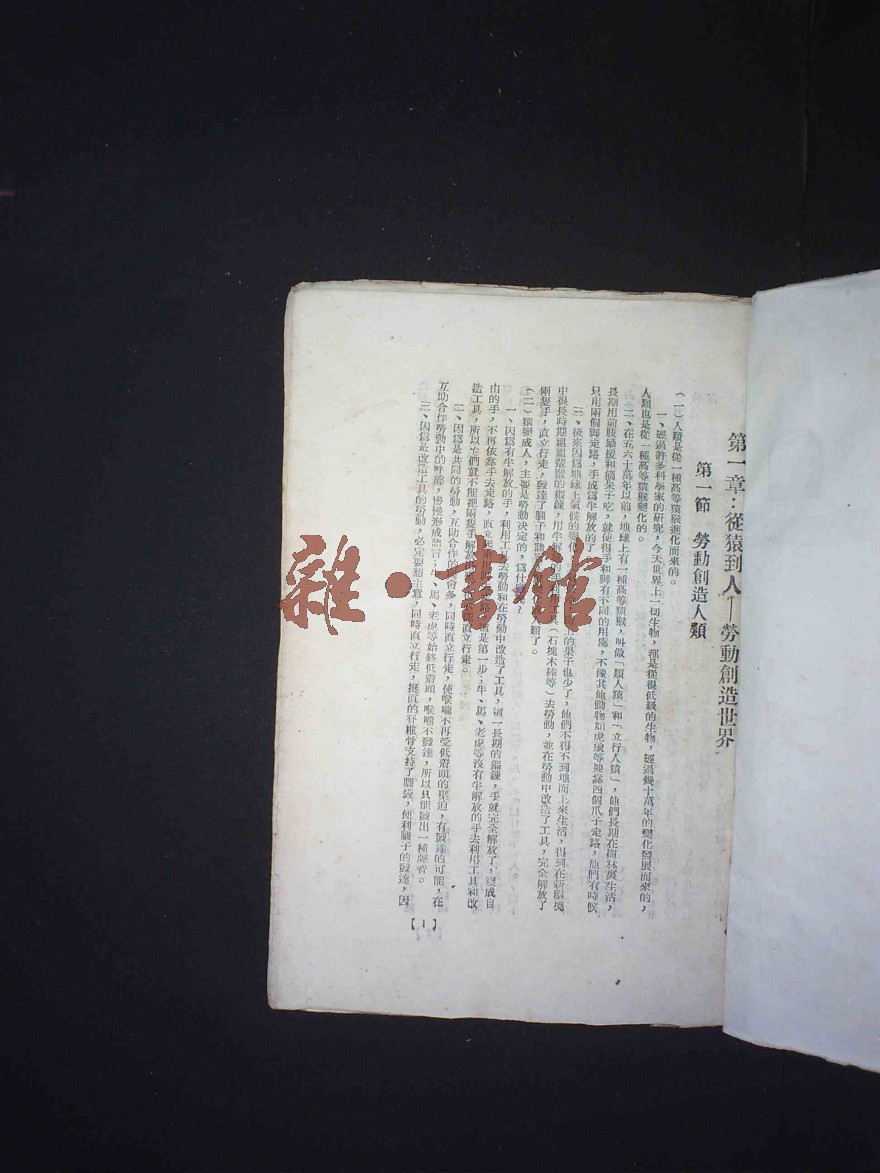 第一章：從猿到人—勞動創造世界
第一節　勞動創造人類
（一）人類是從一種高等猿猴進化而來的。
一、經過許多科學家的研究，今天世界上一切生物，都是從很低級的生物，經過幾十萬年的變化發展而來的，
人類也是從一種高等猿猴變化的。
二、在五六十萬年以前，地球上有一種高等猿猴，叫做「類人猿」和「立行人猿」，他們長期在樹林裏生活，
長期用前肢攀援和摘果子吃，就使得手和脚有不同的用處，不像其他動物如虎狼等要靠四個爪子走路，他們有時候
只用兩個脚走路，手成為半解放的了
三、後來因為地球上氣候的變化 上的果子也少了，他們不得不到地面上來生活，得到在新環境
中很長時期 的鍛鍊，用半解 具（石塊木棒等）去勞動，並在勞動中改造了工具，完全解放了
兩隻手，直立行走，發達了腦子和 人類了。
（二）猿變成人，主要是勞動決定的，為什麼？
一、因為有半解放的手，利用工具去勞動和在勞動中改造了工具，這一長期的鍛鍊，手就完全解放了，變成自
由的手，不再依靠手去走路，直立起 這是第一步；牛、馬、老虎等沒有半解放的手去利用工具和改
造工具，所以它們就不能把兩隻手解放 直立行走。
二、因為是共同的勞動，互助合作的機會多，同時直立行走，使喉嚨不再受低着頭的壓迫，有發達的可能，在
互助合作勞動中的呼應，慢慢形成語言；牛、馬、老虎等始終低着頭，喉嚨不發達，所以只能發出一種聲音。
三、因為是改造工具的勞動，必定要想主意，同時直立行走，挺直的脊椎骨支持了腦袋，便利腦子的發達，因
【1】
雜·書館